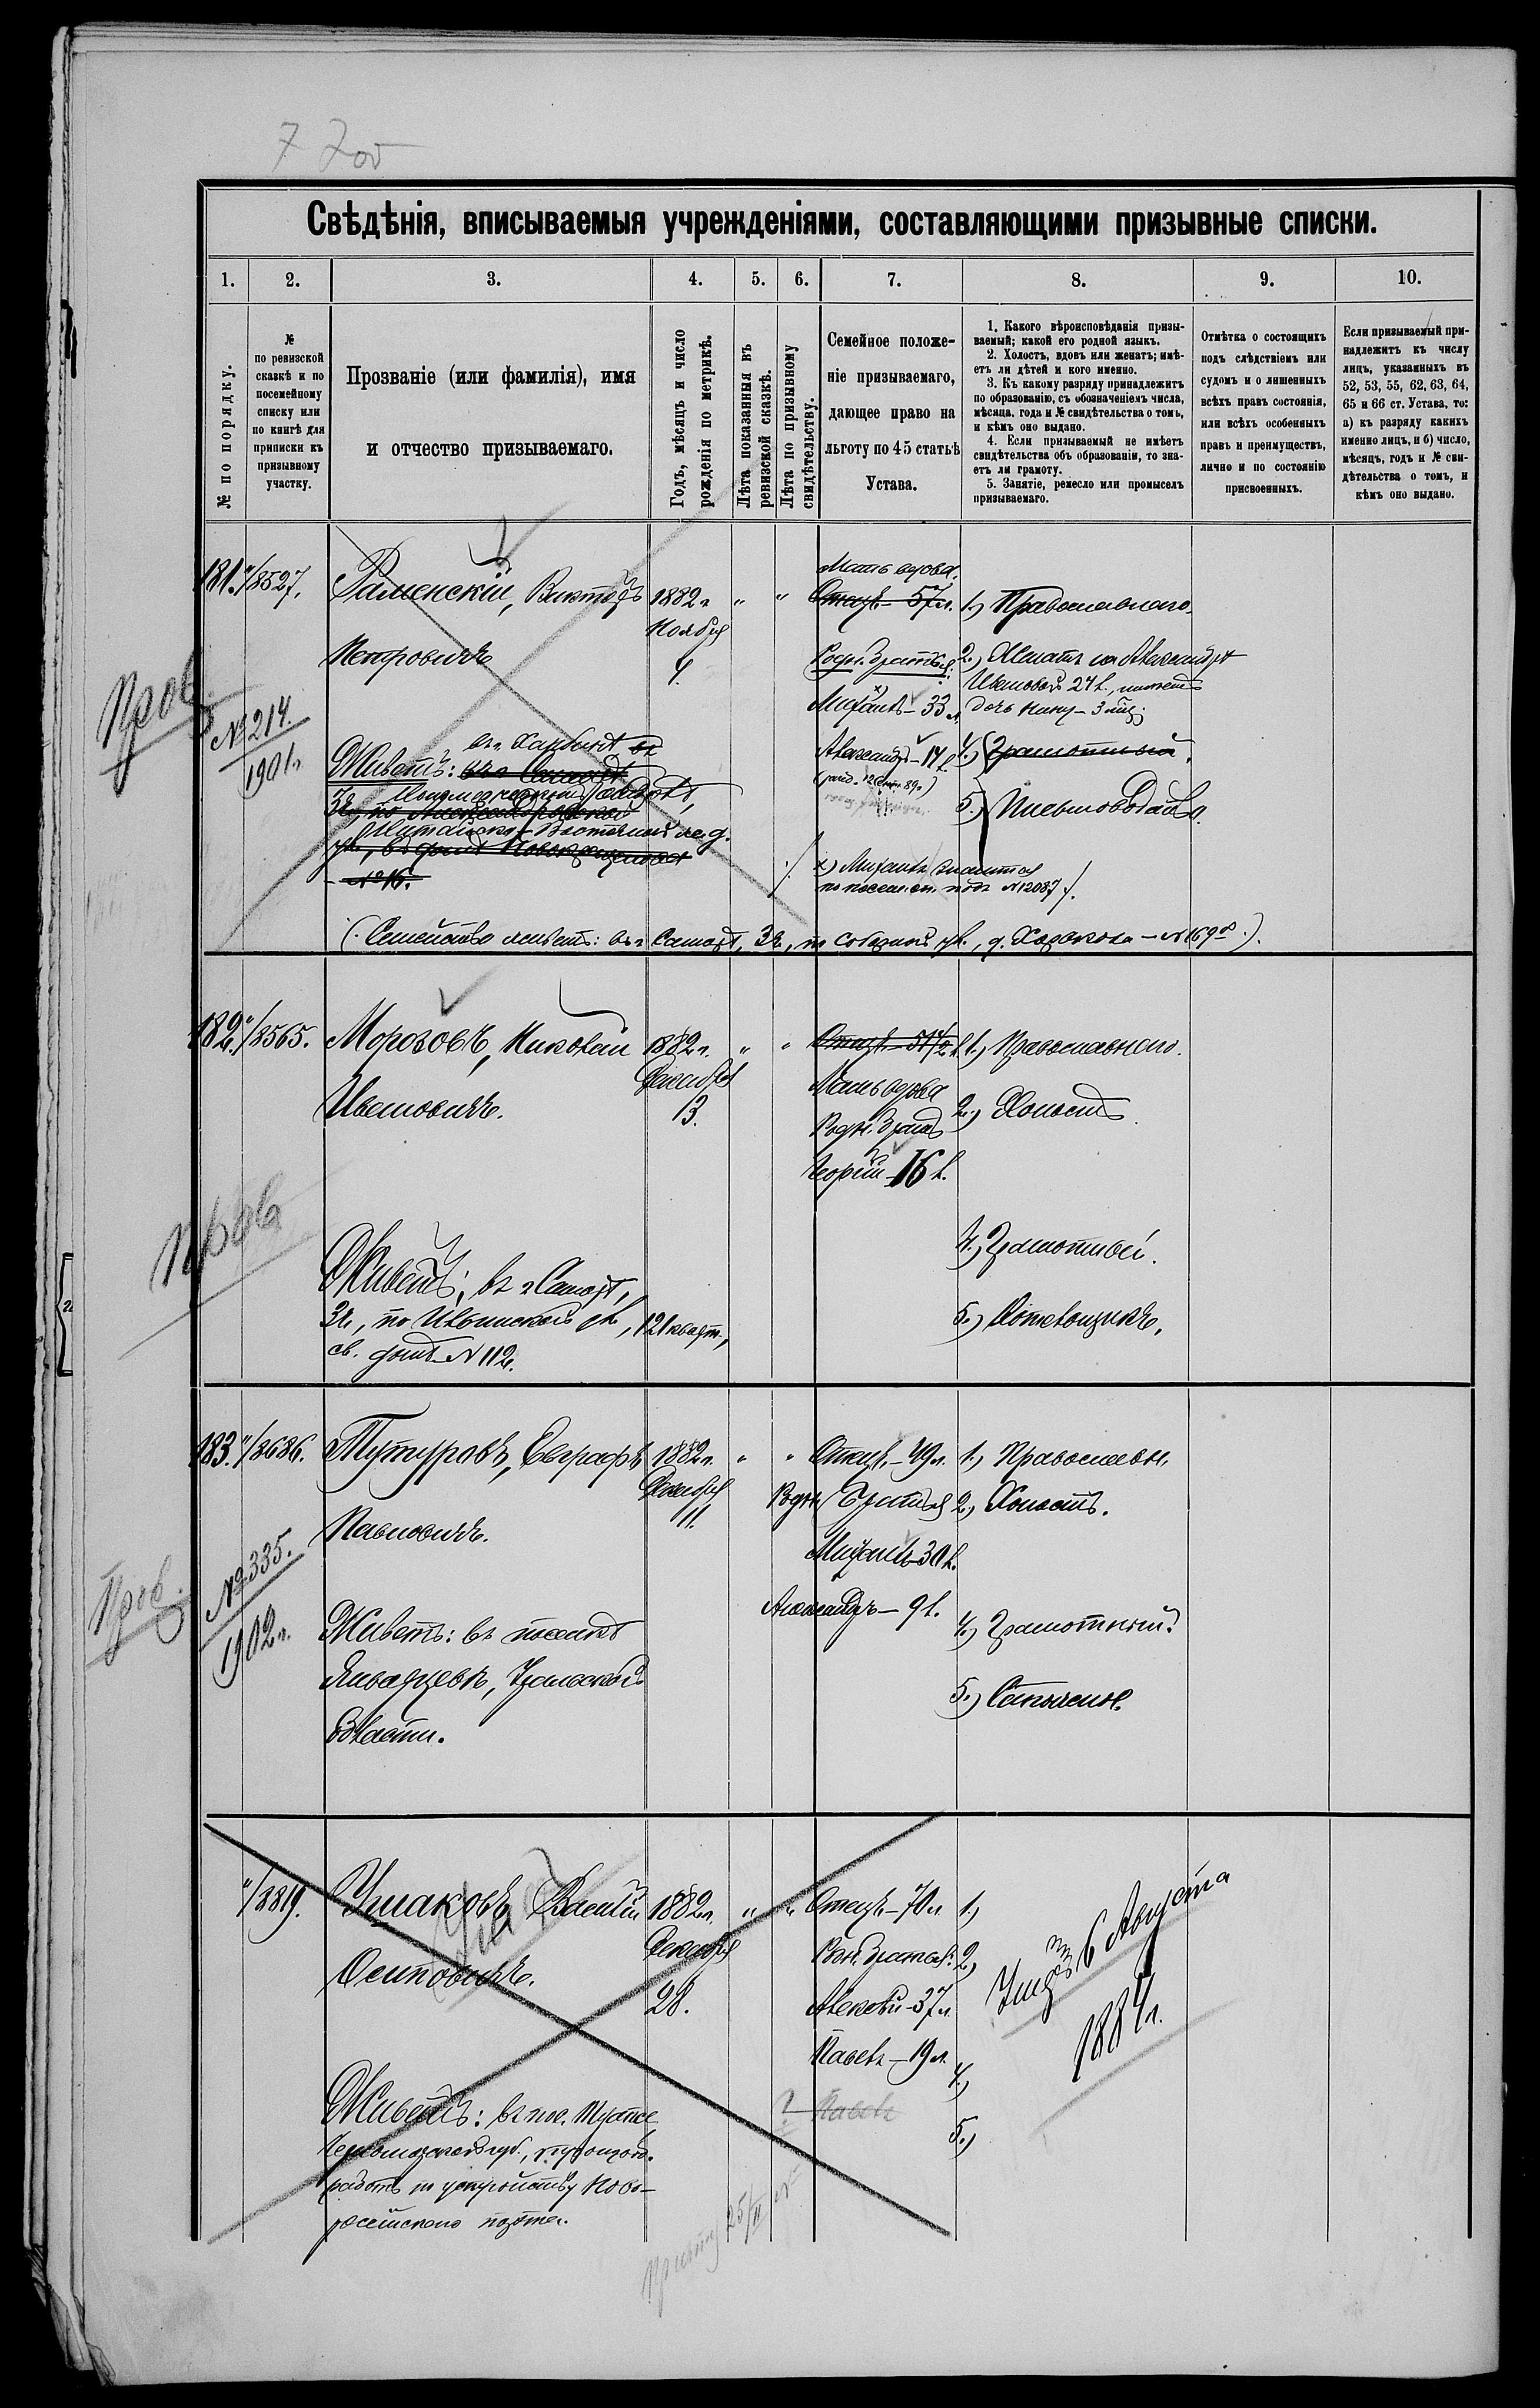 7 Zoб
Свѣдѣнія, вписываемыя учрежденіями, составляющими призывные списки.
1. 2. 3. 4. 5. 6. 7. 8. 9. 10.
№ по порядку.
№
по ревизской
сказкѣ и по
посемейному
списку или
по книгѣ для
приписки къ
призывному
участку.
Прозваніе (или фамилія), имя
и отчество призываемаго.
Годъ, мѣсяцъ и число
рожденія по метрикѣ.
Лѣта показанныя въ
ревизской сказкѣ.
Лѣта по призывному
свидѣтельству.
Семейное положе-
ніе призываемаго,
дающее право на
льготу по 45 статьѣ
Устава.
1. Какого вѣроисповѣданія призы-
ваемый; какой его родной языкъ.
2. Холостъ, вдовъ или женатъ; имѣ-
етъ ли дѣтей и кого именно.
3. Къ какому разряду принадлежитъ
по образованію, съ обозначеніемъ числа,
мѣсяца, года и № свидѣтельства о томъ,
и кѣмъ оно выдано.
4. Если призываемый не имѣетъ
свидѣтельства объ образованіи, то зна-
етъ ли грамоту.
5. Занятіе, ремесло или промыселъ
призываемаго.
Отмѣтка о состоящихъ
подъ слѣдствіемъ или
судомъ и о лишенныхъ
всѣхъ правъ состоянія,
или всѣхъ особенныхъ
правъ и преимуществъ,
лично и по состоянію
присвоенныхъ.
Если призываемый при-
надлежитъ къ числу
лицъ, указанныхъ въ
52, 53, 55, 62, 63, 64,
65 и 66 ст. Устава, то:
а) къ разряду какихъ
именно лицъ, и б) число,
мѣсяцъ, годъ и № сви-
дѣтельства о томъ, и
кѣмъ оно выдано.
181. "/8527. Раменскій, Викторъ
Петровичъ
1882 г. " "
Ноября
4.
Мать вдова.
Отецъ - 57 л.
Родн. братья:
x) Михаилъ - 33 л.
Александръ - 14 л.
1.) Православнаго.
2.) Женатъ на Александрѣ
Ивановой 24 л., имѣетъ
дочь Нину - 3 мѣс.
4.) Грамотный.
5.) Письмоводство.
Пров.
№ 214.
1901 г.
Живетъ: въ г. Самарѣ
въ г. Харбинѣ
Китайско-Восточной ж. д.
№ 16.
x) Михаилъ значится
по посем. сп. подъ № 12087.
(Семейство живетъ: въ г. Самарѣ, 3 ч., по Соборной ул., д. Харькова - № 169.)
182. "/8565. Морозовъ, Николай
Ивановичъ.
1882 г. " "
Декабря
13.
Отецъ - 51 1/2 л.
Мать вдова
Родн. братъ
Георгій - 16 л.
1.) Православнаго.
2.) Холостъ
4.) Грамотный.
5.) Котельщикъ.
Пров
Живетъ: въ г. Самарѣ,
3 ч., по Ильинской ул., 121 кварт.,
св. домъ № 112.
183. "/8686. Тутуровъ, Евграфъ
Павловичъ.
1882 г. " "
Декабря
11.
Отецъ - 49 л.
Родн. братья
Михаилъ - 30 л.
Александръ - 9 л.
1.) Православн.
2.) Холостъ.
4.) Грамотный.
5.) Сапожное.
Пров.
№ 335.
1902 г.
Живетъ: въ поселкѣ
Январцевѣ, Уральской
области.
"/8819. Ушаковъ Василій
Осиповичъ.
1882 г. " "
Декабря
28.
Отецъ - 70 л.
Родн. братья:
Алексѣй - 37 л.
Павелъ - 19 л.
? Павелъ
1.)
2.)
4.)
5.)
6 Августа
1884 г.
Живетъ: въ пос. Туапсе
Черноморской губ.,
работъ по устройству Ново-
россійскаго порта.